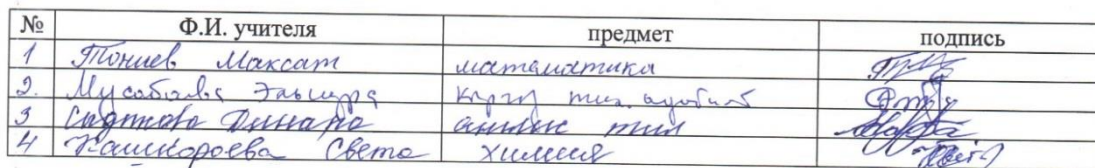 № Ф.И. учителя предмет подпись
1 Тониев Максат математика
2. Мусабаева Эльнура кыргыз тил. адабият
3 Садткова Динара англис тил
4 Кашкороева Света химия